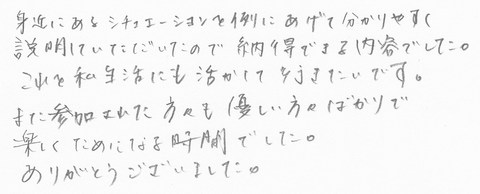 身近にあるシチュエーションを例にあげて分かりやすく
説明していただいたので納得できる内容でした。
これを私生活にも活かして行きたいです。
また参加された方々も優しい方々ばかりで
楽しくためになる時間でした。
ありがとうございました。